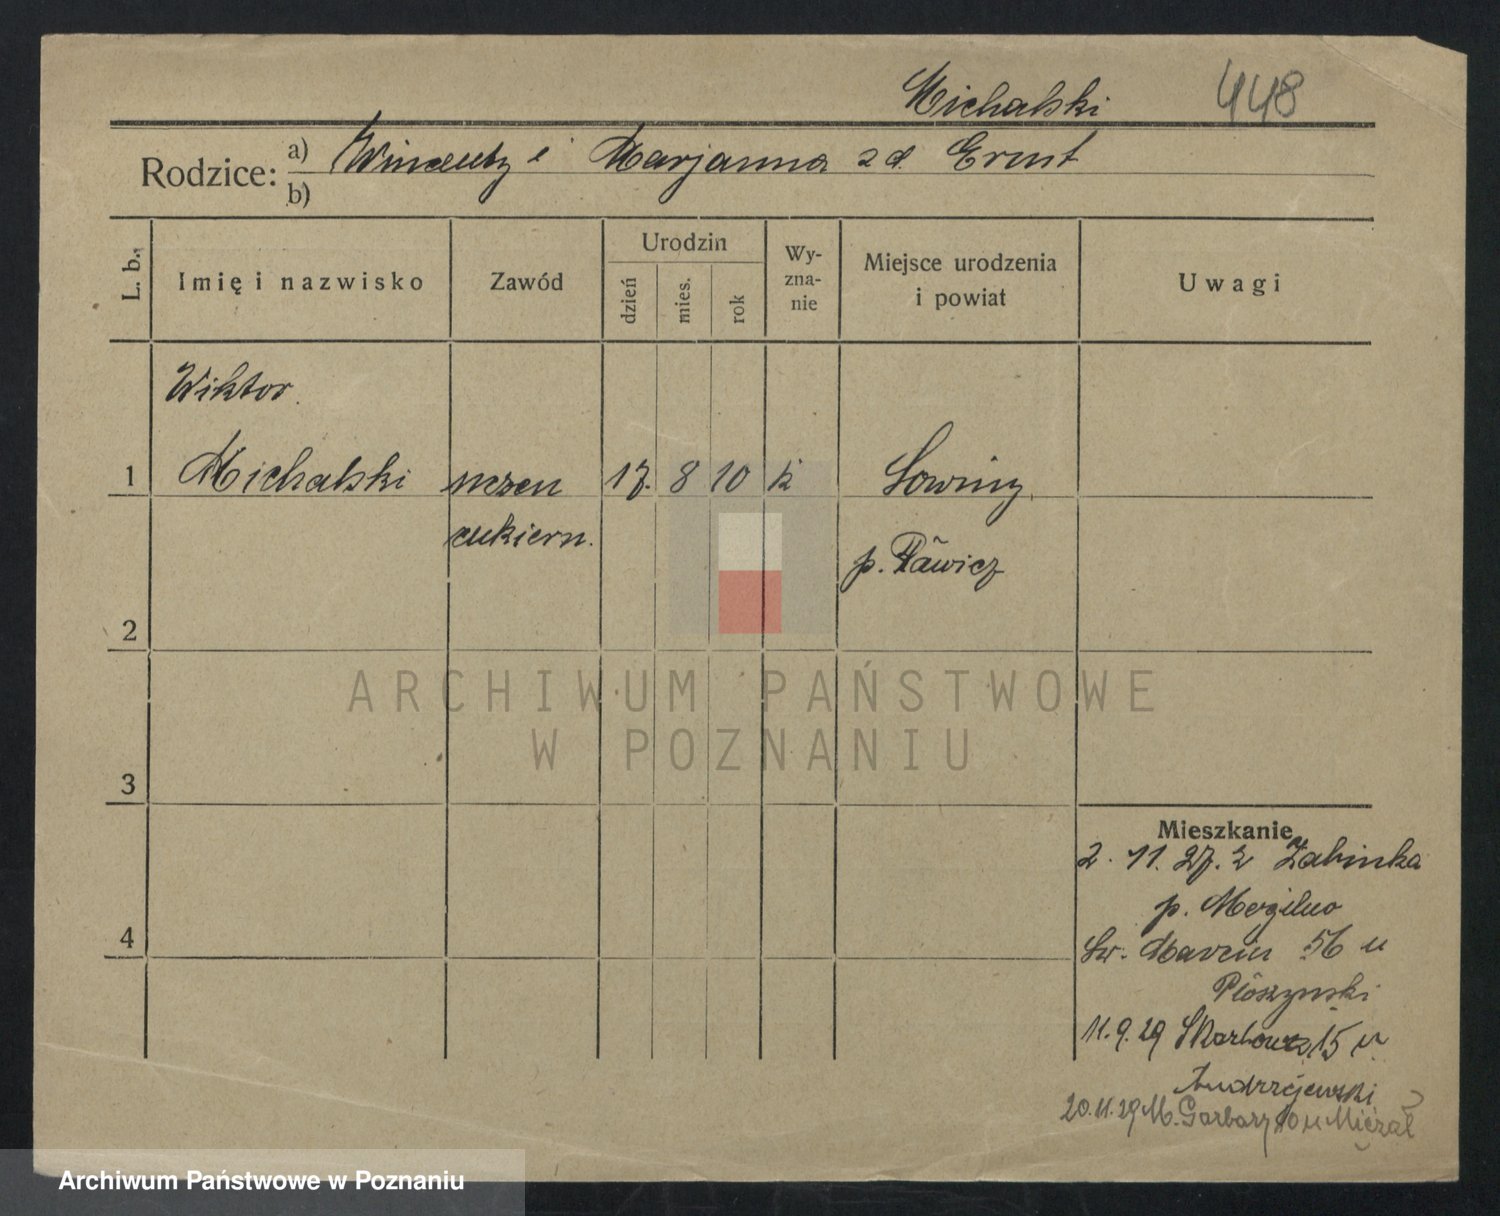 Michalski 448
Rodzice: a) Wincenty i Marjanna zd. Ernst
b)
L. b.
Imię i nazwisko
Zawód
Urodzin
dzień
mies.
rok
Wy-
zna-
nie
Miejsce urodzenia
i powiat
Uwagi
Wiktor
1 Michalski uczen 17. 8 10 k Sowiny
cukiern. p. Rawicz
2
3
4
ARCHIWUM PAŃSTWOWE
W POZNANIU
Mieszkanie
2. 11. 27. z Żabinka
p. Mogilno
Św. Marcin 56 u
11. 9. 29 Skarbowa 15 u
Andrzejewski
20.11.29 M. Garbary 10 u
Archiwum Państwowe w Poznaniu